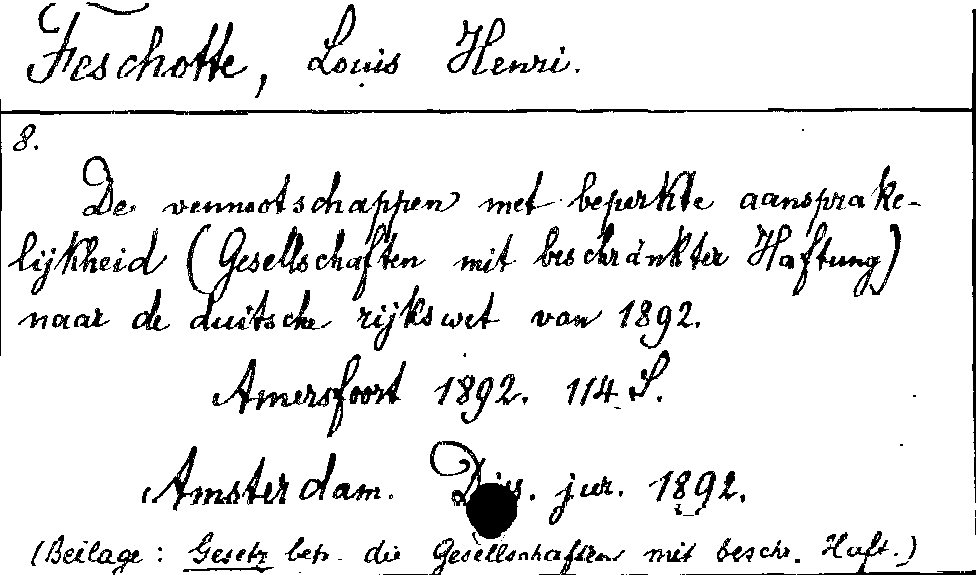 Feschotte, Louis Henri.
8.
De vennootschappen met beperkte aansprake-
lijkheid (Gesellschaften mit beschränkter Haftung)
naar de duitsche rijkswet van 1892.
Amersfoort 1892. 114 S.
Amsterdam. Diss. jur. 1892.
(Beilage: Gesetz betr. die Gesellschaften mit beschr. Haft.)